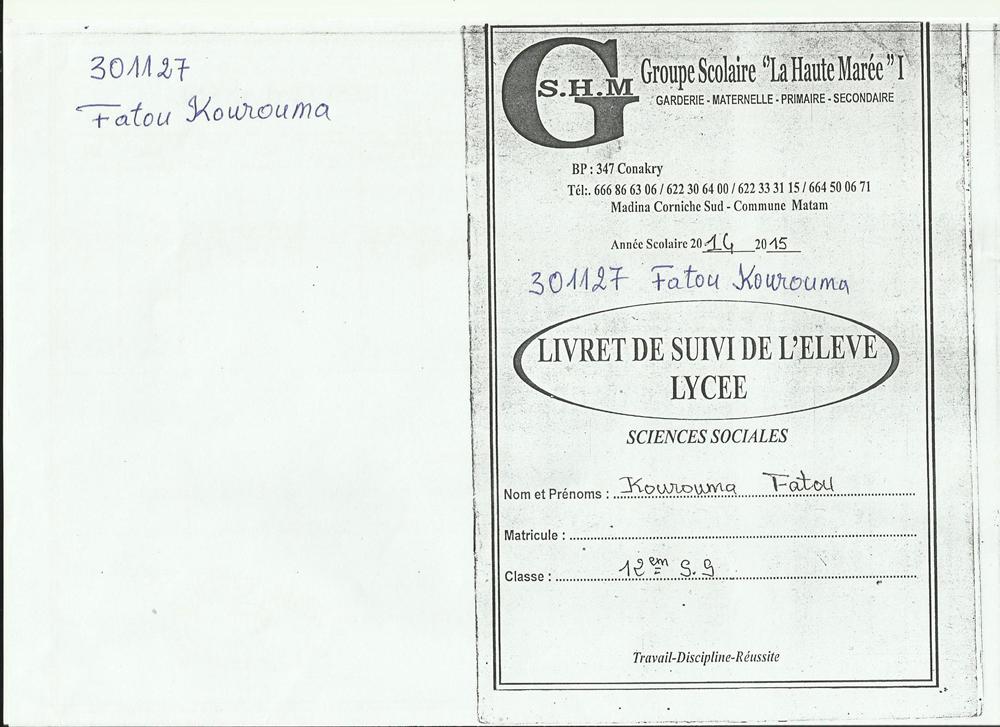 301127
Fatou Kourouma
G
S.H.M
Groupe Scolaire "La Haute Marée" I
GARDERIE - MATERNELLE - PRIMAIRE - SECONDAIRE
BP : 347 Conakry
Tél:. 666 86 63 06 / 622 30 64 00 / 622 33 31 15 / 664 50 06 71
Madina Corniche Sud - Commune Matam
Année Scolaire 2014 2015
301127 Fatou Kourouma
LIVRET DE SUIVI DE L'ELEVE
LYCEE
SCIENCES SOCIALES
Nom et Prénoms : Kourouma Fatou
Matricule :
Classe : 12em S.S
Travail-Discipline-Réussite